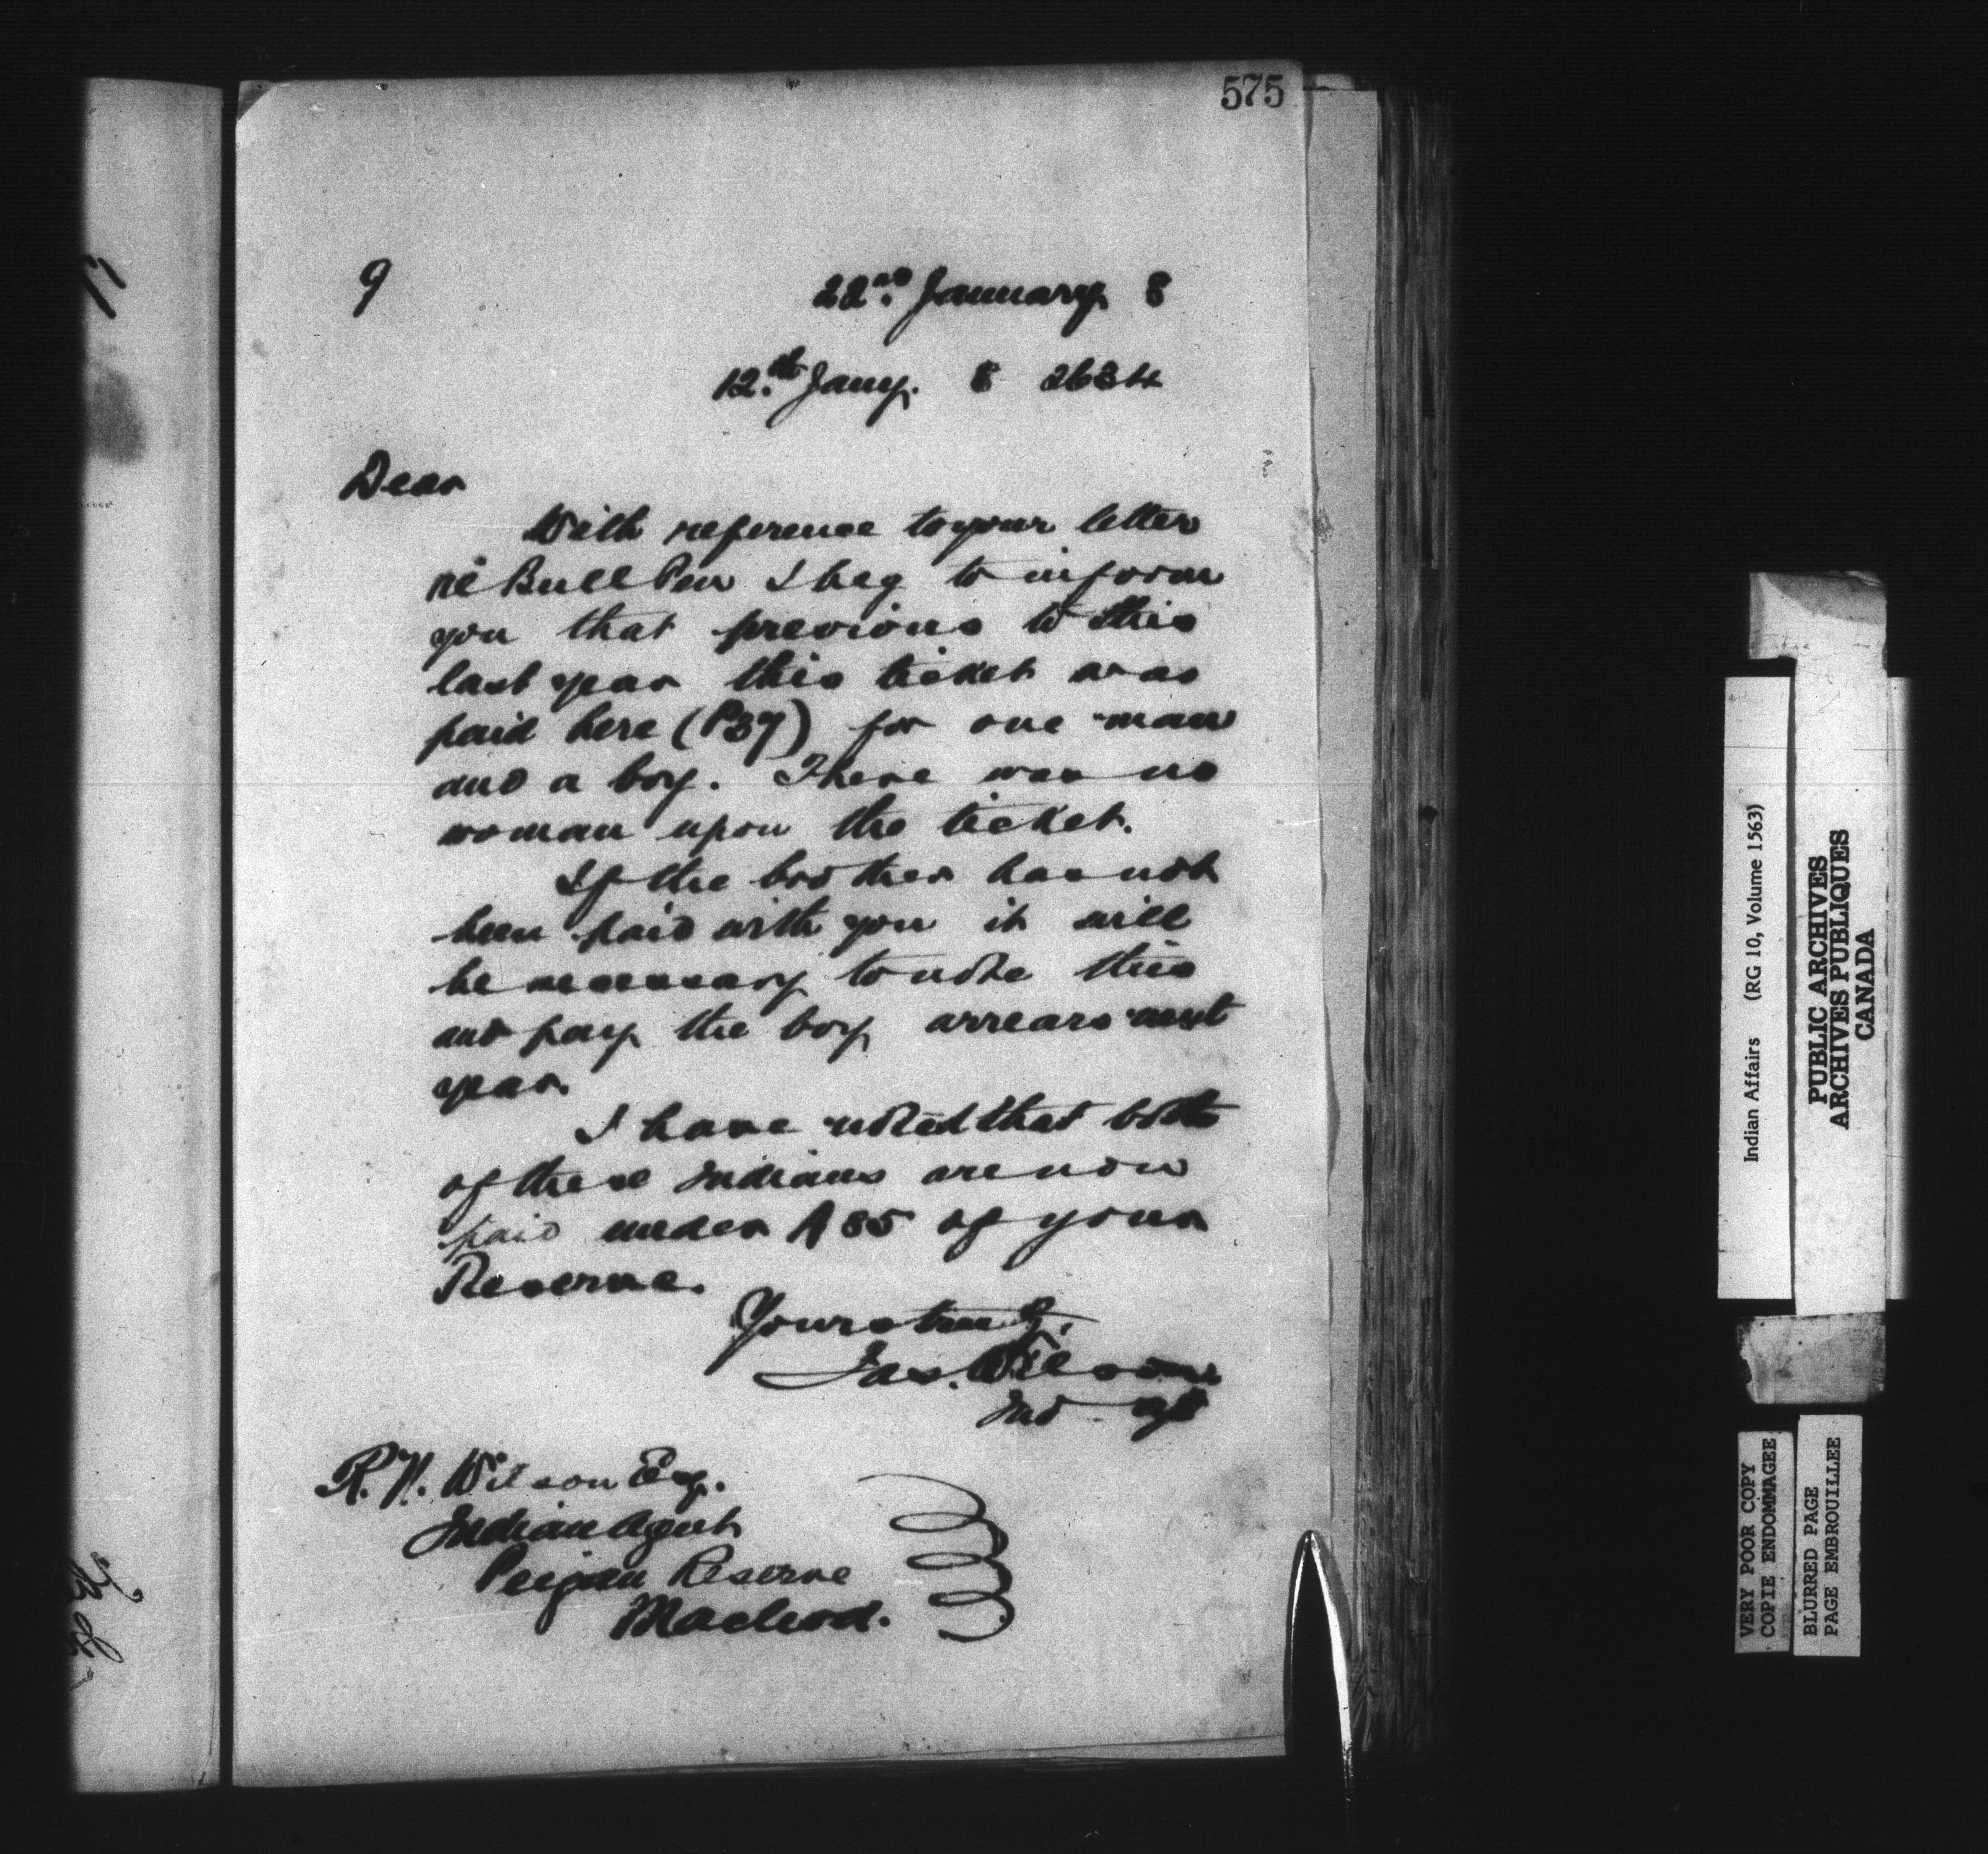 575
9
22nd. January 8
12.th Jany. 8 2634
Dear
With reference to your letter
re Bull Pen I beg to inform
you that previous to this
last year this ticket was
paid here (P37) for one man
and a boy. There was no
woman upon the ticket.
If the brother has not
been paid with you it will
be necessary to note this
and pay the boy arrears next
year.
I have noted that both
of these Indians are now
paid under A 85 of your
Reserve.
Yours truly,
Jas. Wilson
Ind Agt
R. N. Wilson Esq.
Indian Agent
Peigan Reserve
Macleod.
Indian Affairs (RG 10, Volume 1563)
PUBLIC ARCHIVES
ARCHIVES PUBLIQUES
CANADA
VERY POOR COPY
COPIE ENDOMMAGEE
BLURRED PAGE
PAGE EMBROUILLEE